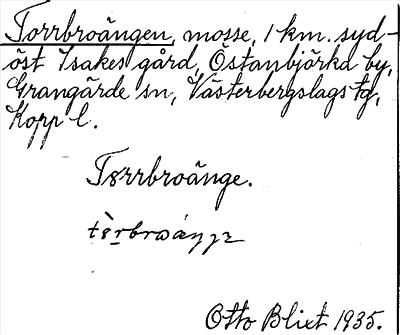 Torrbroängen, mosse, 1 km. syd-
öst Isakes gård, Östanbjörka by,
Grangärde sn, Västerbergslags tg,
Kopp l.
T8rrbroänge.
Otto Blixt 1935.